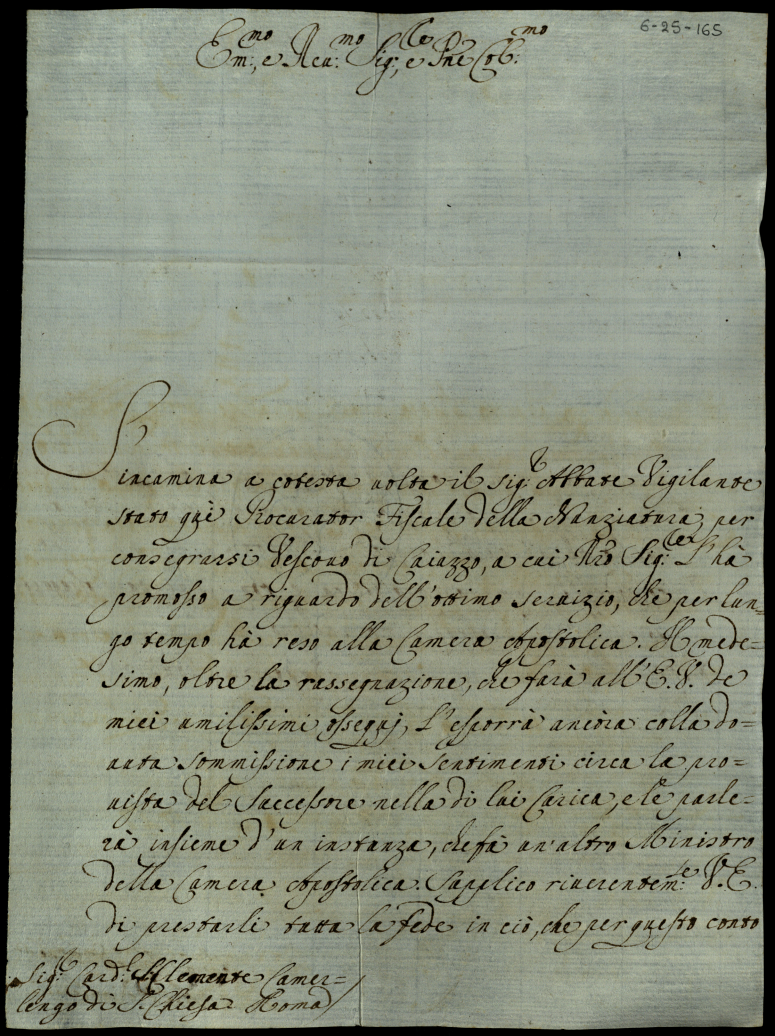 6-25-165
Em:mo, e Reu:mo Sig:re, e Pne Col:mo
S'incamina a cotesta uolta il Sig:r Abbate Vigilante
stato quì Procurator Fiscale della Nunziatura, per
consegrarsi Vescouo di Caiazzo, a cui Nro Sig:re l'hà
promosso a riguardo dell'ottimo seruizio, che per lun=
go tempo hà reso alla Camera Apostolica. Il mede=
simo, oltre la rassegnazione, che farà all'E. V. de
miei umilissimi ossequj, l'esporrà ancora colla do=
uuta sommissione i miei sentimenti circa la pro=
uista del Successore nella di lui Carica, e le parle=
rà insieme d'un instanza, che fà un'altro Ministro
della Camera Apostolica. Supplico riuerentem:te V. E.
di prestarli tutta la fede in ciò, che per questo conto
Sig:r Card:l Camer=
lengo di S. Chiesa Roma